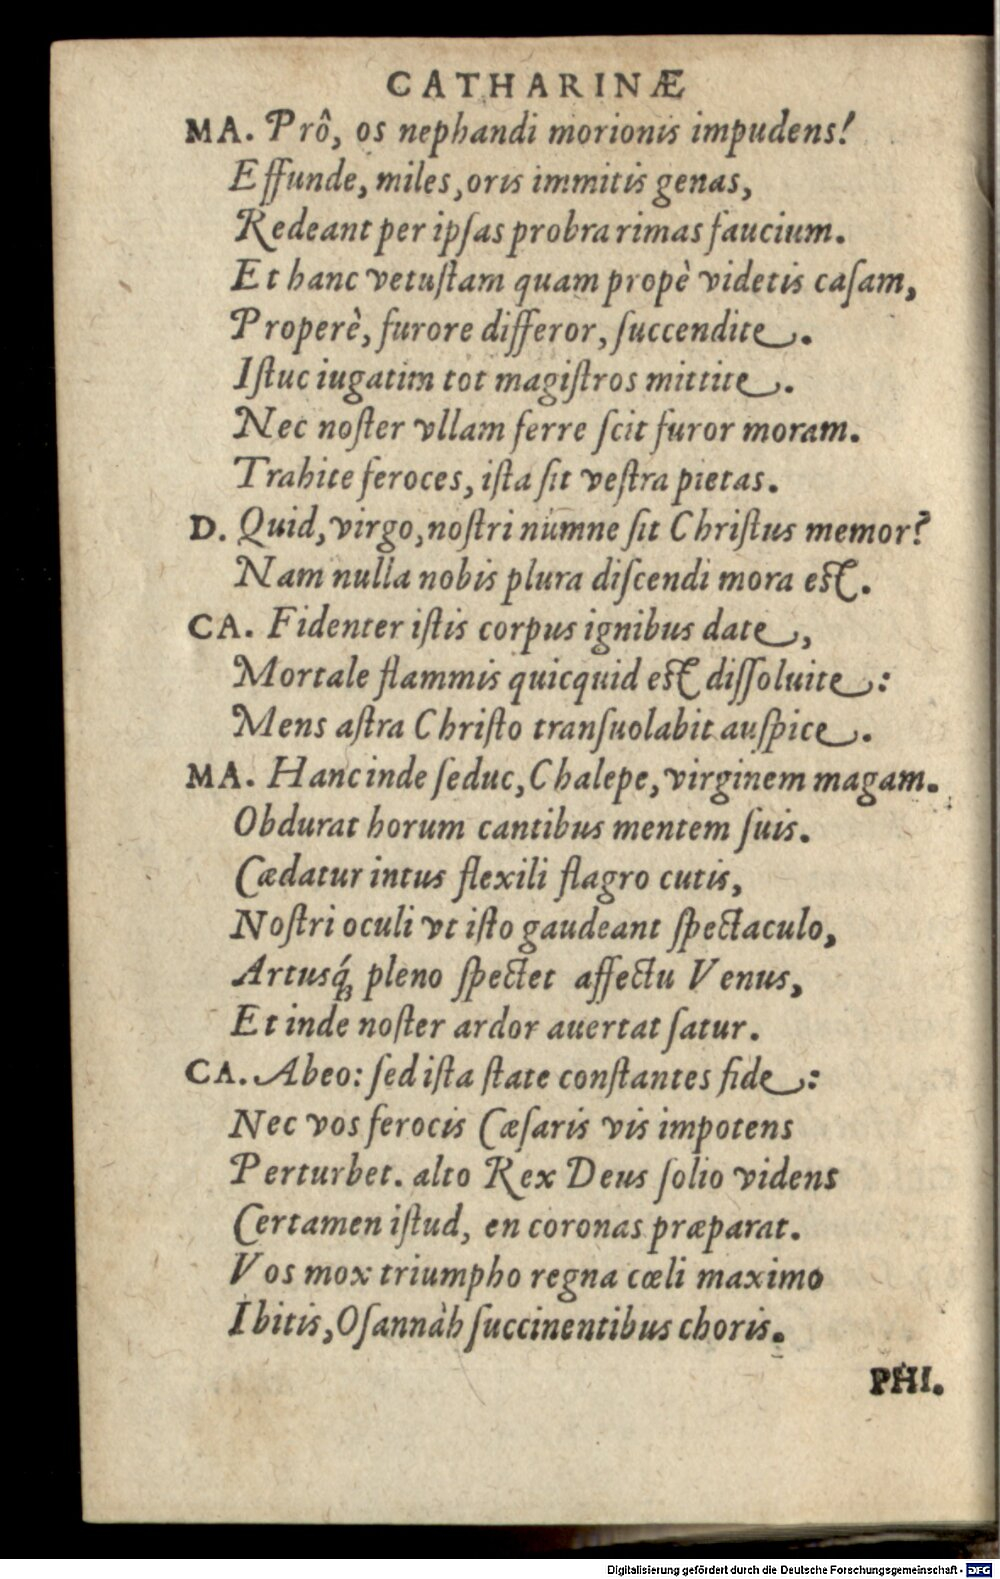 CATHARINÆ
MA. Prô, os nephandi morionis impudens!
Effunde, miles, oris immitis genas,
Redeant per ipſas probra rimas faucium.
Et hanc vetuſtam quam propè videtis caſam,
Properè, furore differor, ſuccendite.
Iſtuc iugatim tot magiſtros mittite.
Nec noſter vllam ferre ſcit furor moram.
Trahite feroces, iſta ſit veſtra pietas.
D. Quid, virgo, noſtri numne ſit Chriſtus memor?
Nam nulla nobis plura diſcendi mora eſt.
CA. Fidenter iſtis corpus ignibus date,
Mortale flammis quicquid eſt diſſoluite:
Mens aſtra Chriſto tranſuolabit auſpice.
MA. Hanc inde ſeduc, Chalepe, virginem magam.
Obdurat horum cantibus mentem ſuis.
Cædatur intus flexili flagro cutis,
Noſtri oculi vt iſto gaudeant ſpectaculo,
Artusq́; pleno ſpectet affectu Venus,
Et inde noſter ardor auertat ſatur.
CA. Abeo: ſed iſta ſtate conſtantes fide:
Nec vos ferocis Cæſaris vis impotens
Perturbet. alto Rex Deus ſolio videns
Certamen iſtud, en coronas præparat.
Vos mox triumpho regna cœli maximo
Ibitis, Oſannàh ſuccinentibus choris.
PHI.
Digitalisierung gefördert durch die Deutsche Forschungsgemeinschaft - DFG